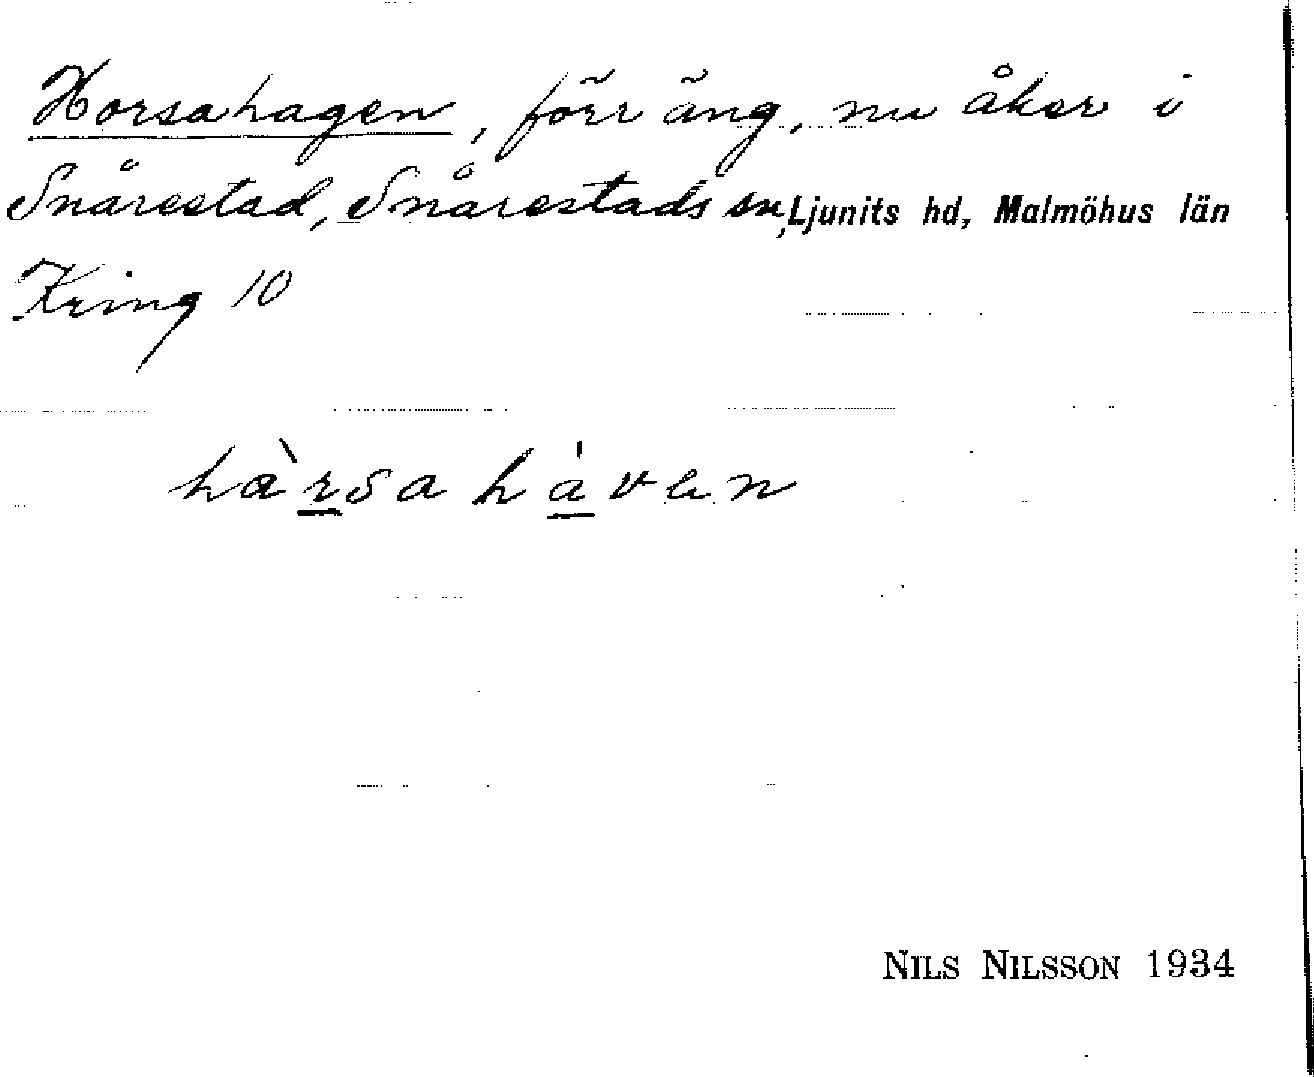 Horsahagen, förr äng, nu åker i
Snårestad, Snårestads sn, Ljunits hd, Malmöhus län
Kring 10
hàrsahávan
NILS NILSSON 1934